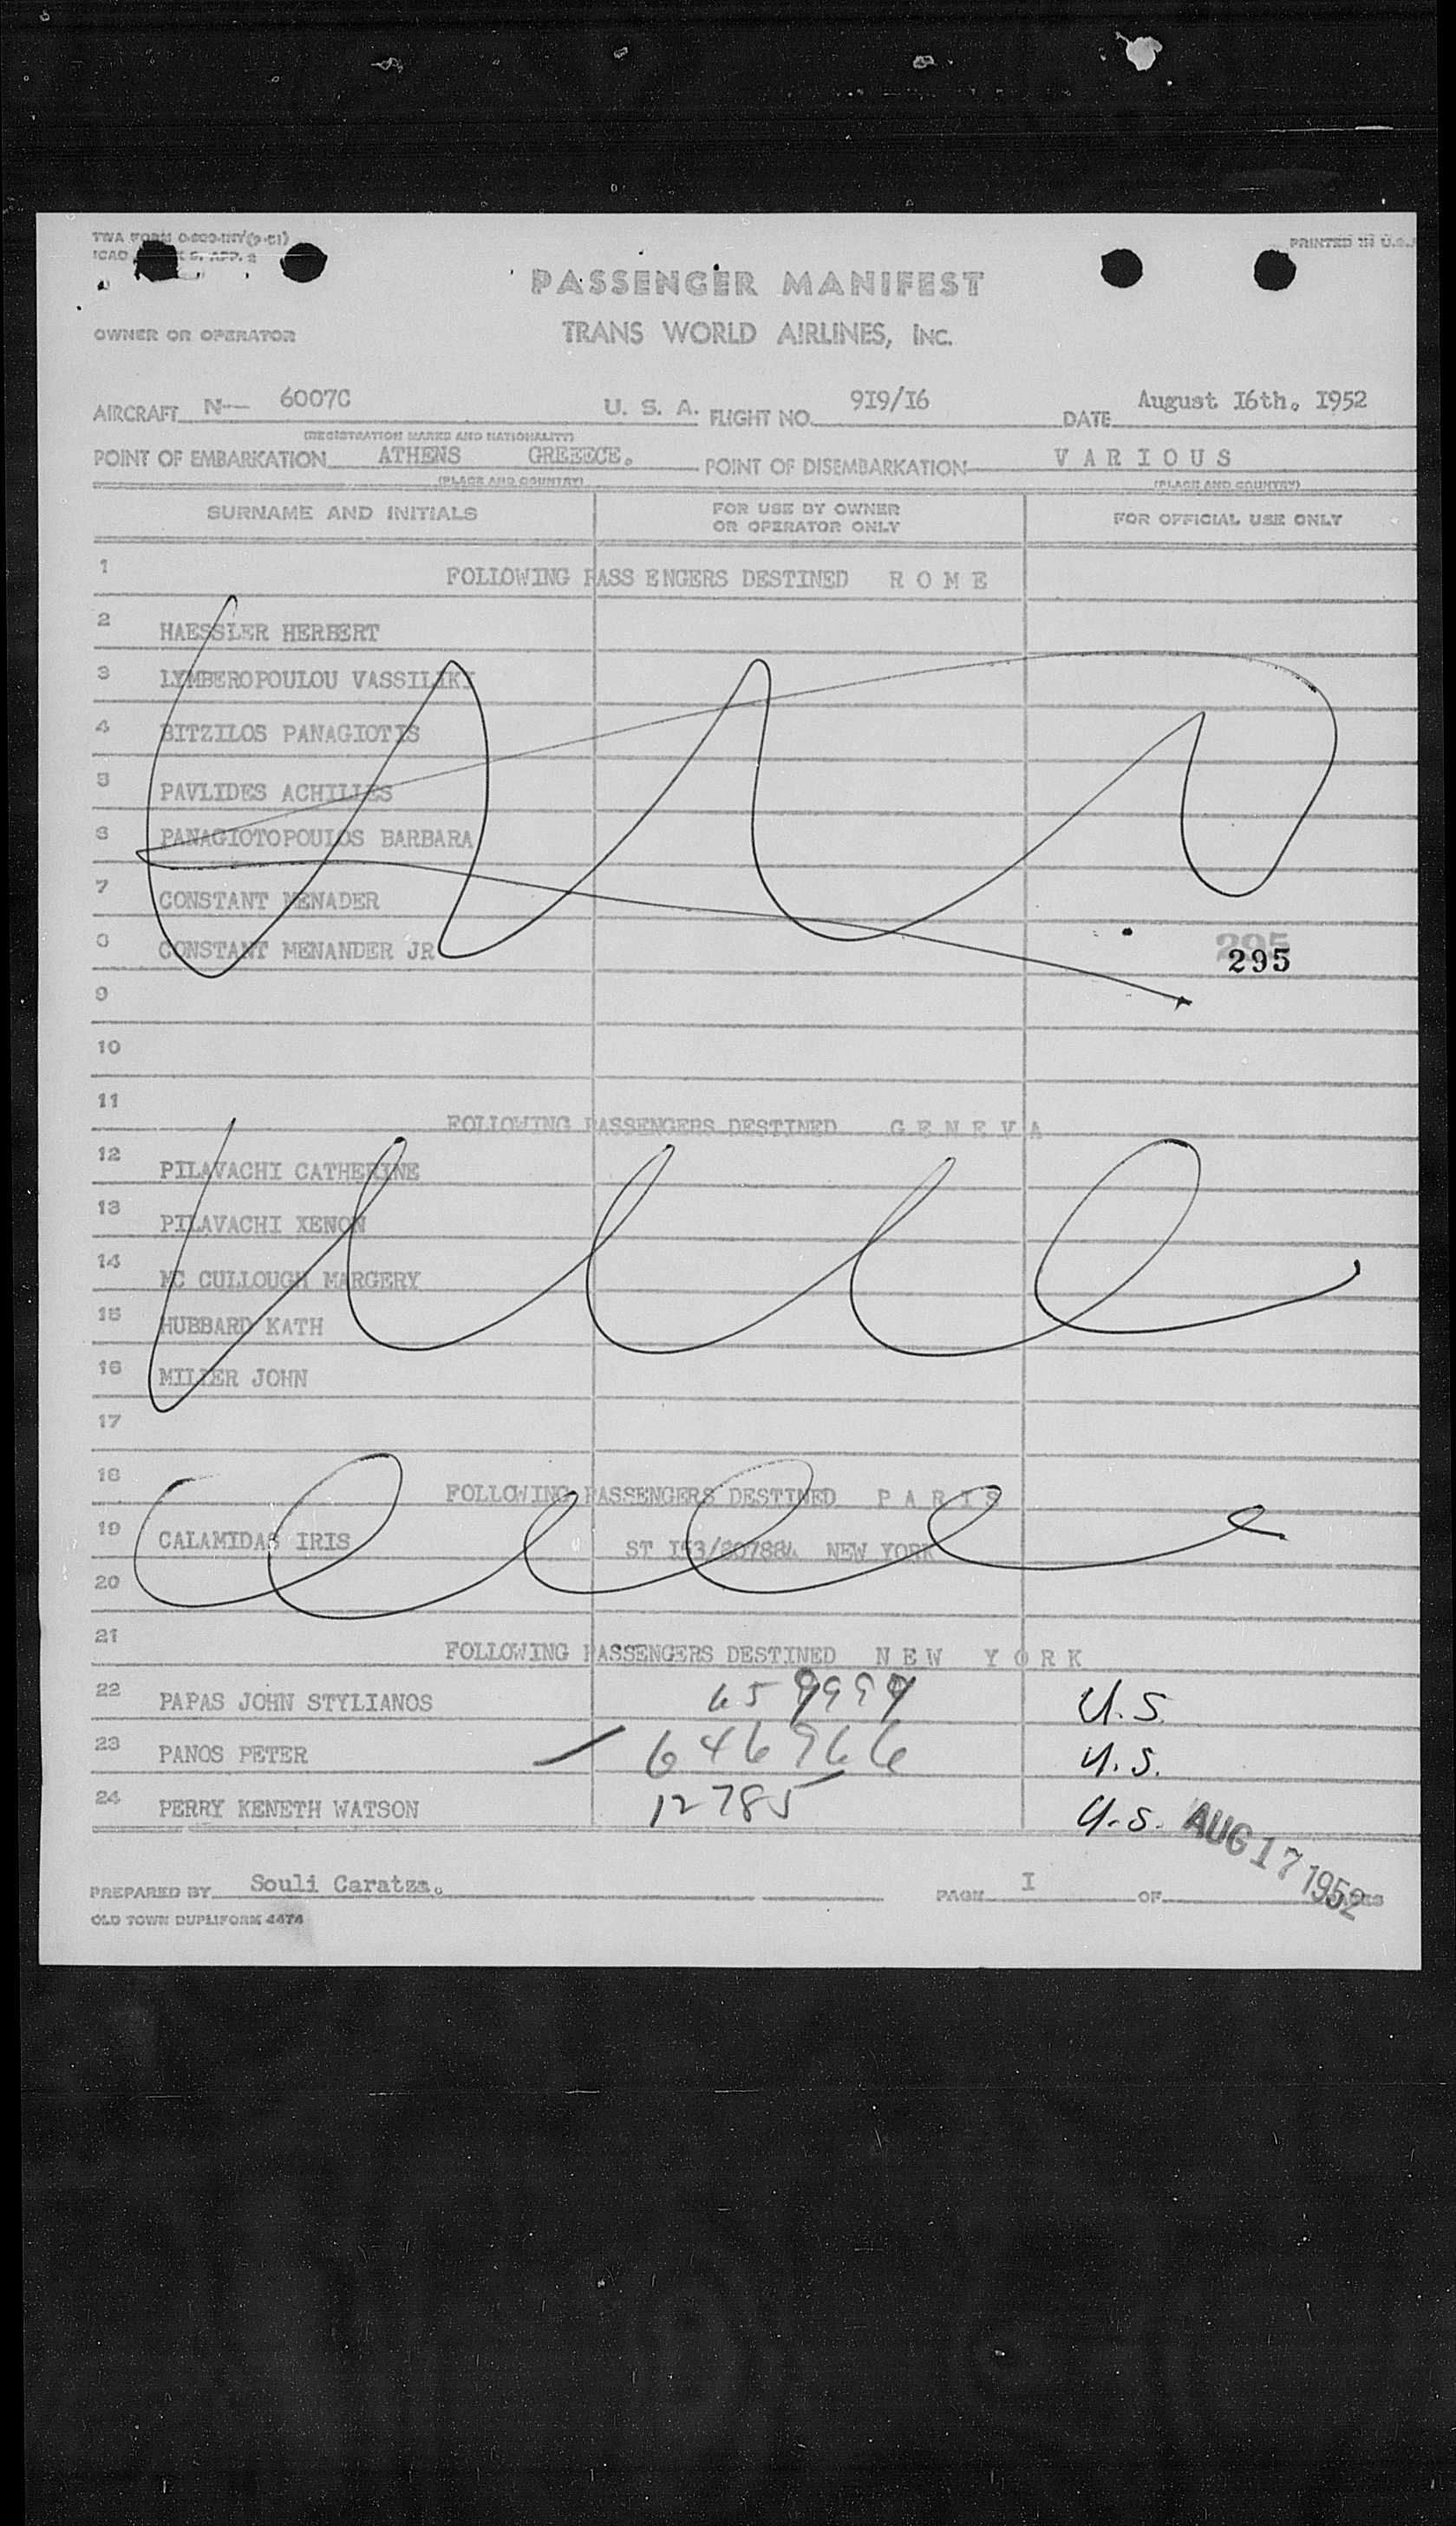 TWA FORM
ICAO
PRINTED IN U.S.
PASSENGER MANIFEST
OWNER OR OPERATOR TRANS WORLD AIRLINES, INC.
AIRCRAFT N-- 6007C U. S. A. FLIGHT NO. 919/16 DATE August I6th. I952
(REGISTRATION MARKS AND NATIONALITY)
POINT OF EMBARKATION ATHENS GREEECE. POINT OF DISEMBARKATION V A R I O U S
(PLACE AND COUNTRY) (PLACE AND COUNTRY)
SURNAME AND INITIALS FOR USE BY OWNER OR OPERATOR ONLY FOR OFFICIAL USE ONLY
1 FOLLOWING PASS ENGERS DESTINED R O M E
2 HAESSLER HERBERT
3 LYMBEROPOULOU VASSILIKI
4 BITZILOS PANAGIOTIS
5 PAVLIDES ACHILLES
6 PANAGIOTOPOULOS BARBARA
7 CONSTANT MENADER
8 CONSTANT MENANDER JR 295
9
10
11 FOLLOWING PASSENGERS DESTINED G E N E V A
12 PILAVACHI CATHERINE
13 PILAVACHI XENON
14 MC CULLOUGH MARGERY
15 HUBBARD KATH
16 MILLER JOHN
17
18 FOLLOWING PASSENGERS DESTINED P A R I S
19 CALAMIDAS IRIS ST NEW YORK
20
21 FOLLOWING PASSENGERS DESTINED N E W Y O R K
22 PAPAS JOHN STYLIANOS U.S.
23 PANOS PETER 646966 U.S.
24 PERRY KENETH WATSON 12785 U.S.
AUG 17 1952
PREPARED BY Souli Caratza. PAGE I OF PAGES
OLD TOWN DUPLIFORM 4474